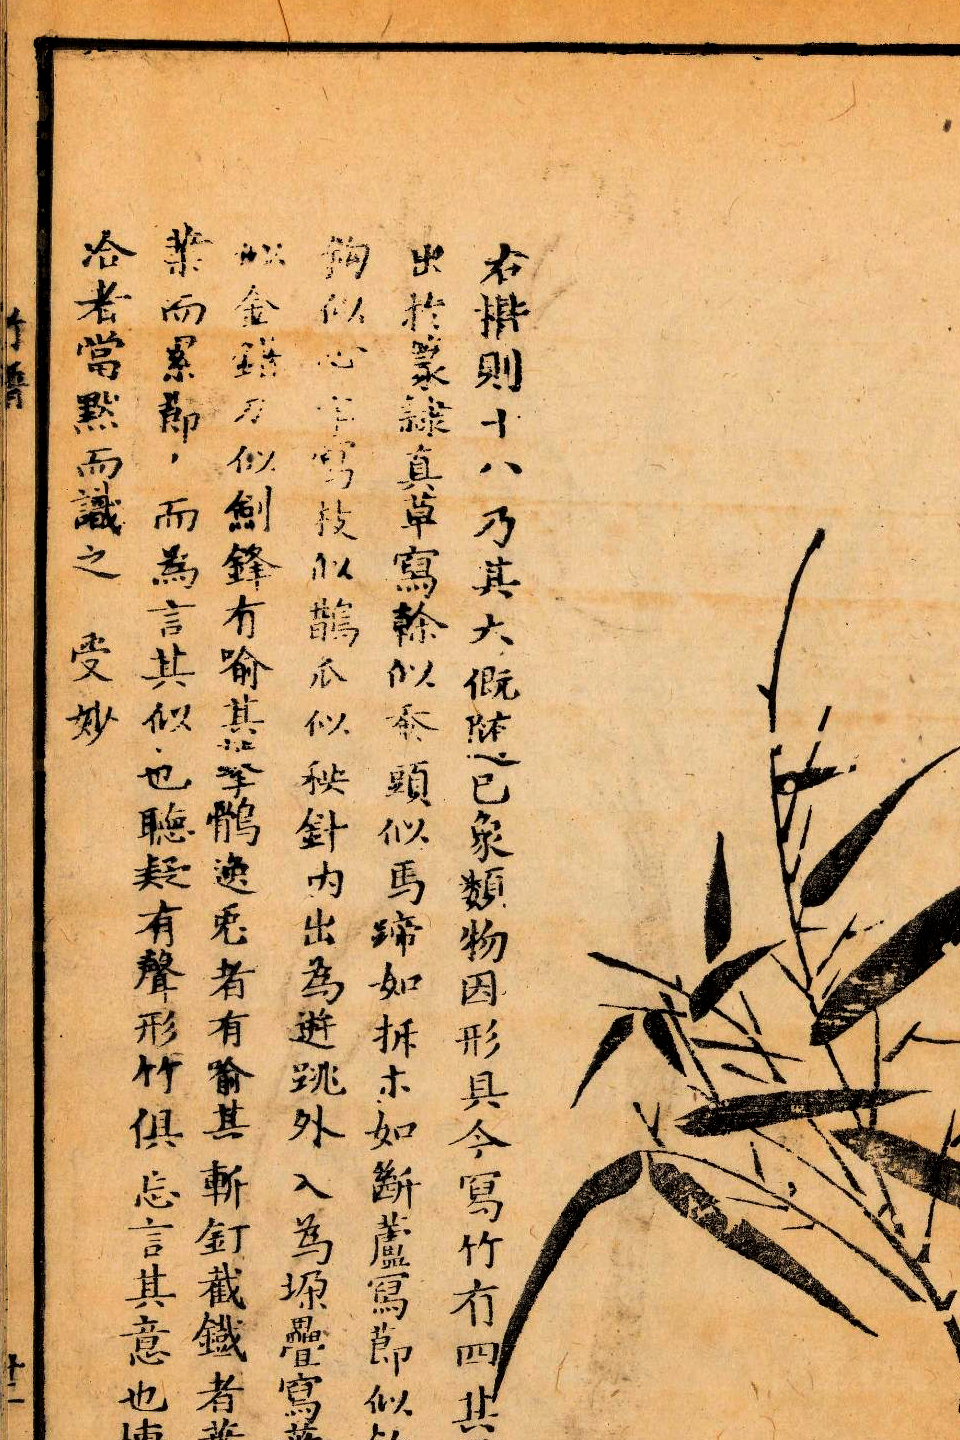 右楷則十八乃其大概隨已象類物因形具今寫竹有四其
出於篆隸真草寫幹似委頭似馬蹄如拆木如斷蘆寫節似
鉤似心字寫枝似鵲爪似秧針內出為迸跳外入為垜疊寫葉
似金錯刀似劍鋒有喻其拏鶻逸兎者有喻其斬釘截鐵者葉
葉而累節而為言其似也聽疑有聲形竹俱忘言其意也博
洽者當默而識之 受妙
竹譜
十二